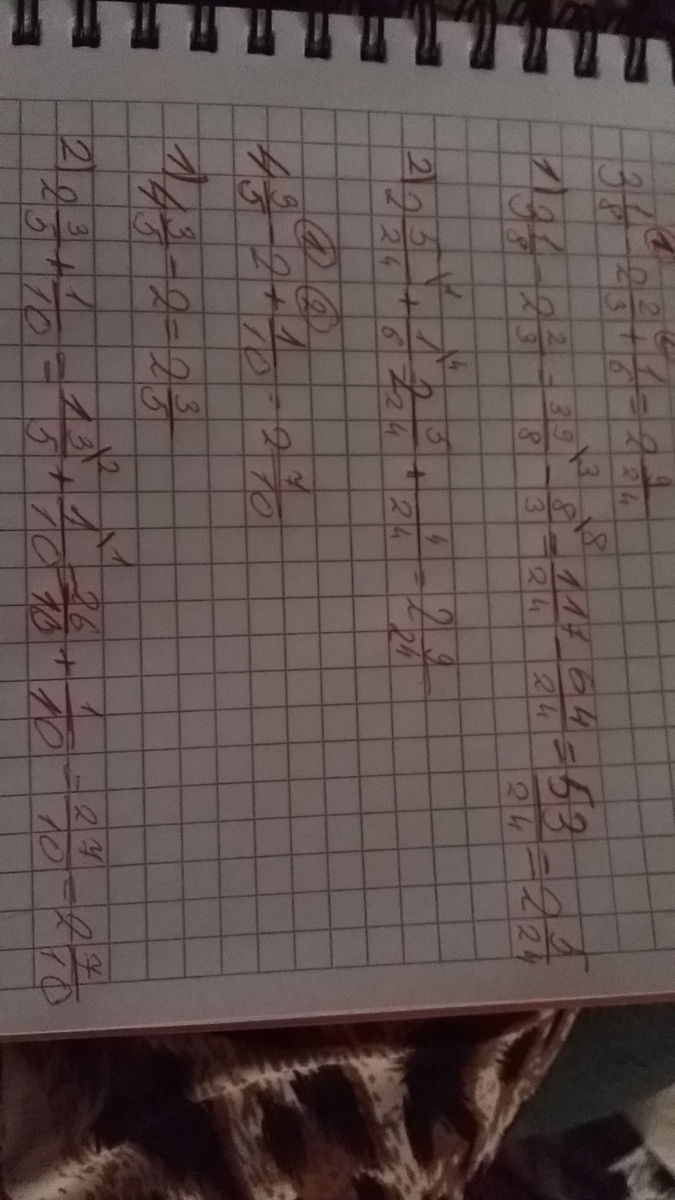 3 1/8 - 2 2/3 + 1/6 = 2 9/24
1) 3 1/8 - 2 2/3 = 39/8 \3 - 8/3 \8 = 117/24 - 64/24 = 53/24 = 2 5/24
2) 2 5/24 \1 + 1/6 \4 = 2 5/24 + 4/24 = 2 9/24
4 3/5 - 2 + 1/10 = 2 7/10
1) 4 3/5 - 2 = 2 3/5
2) 2 3/5 + 1/10 = 13/5 \2 + 1/10 \1 = 26/10 + 1/10 = 27/10 = 2 7/10